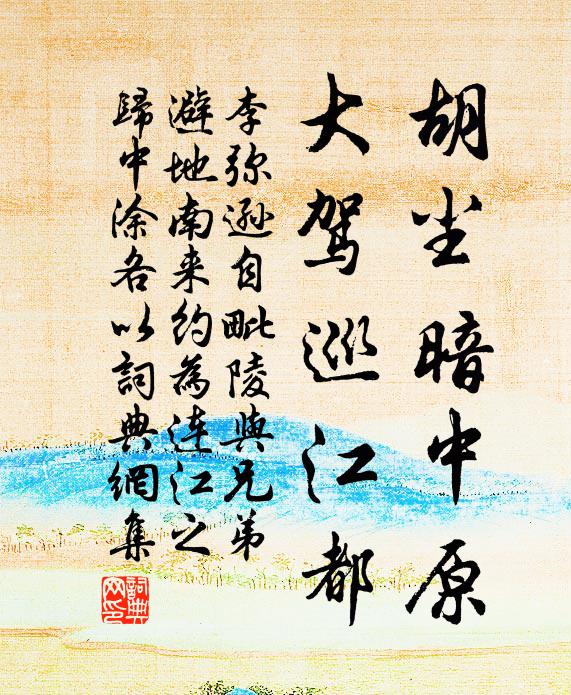 胡尘暗中原
大驾巡江都
李弥逊自毗陵與兄弟
避地南来约為连江之
歸中涂各以詞典網集
詞典